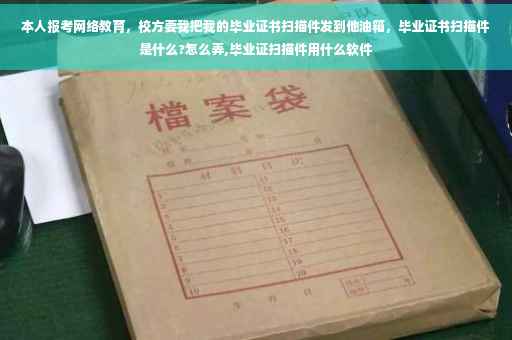 本人报考网络教育，校方要我把我的毕业证书扫描件发到他油箱，毕业证书扫描件
是什么?怎么弄,毕业证扫描件用什么软件
檔案袋
材料目次
1 11
2 12
3 13
4 14
5 15
6 16
7 17
8 18
9 19
10 20
年 月 日